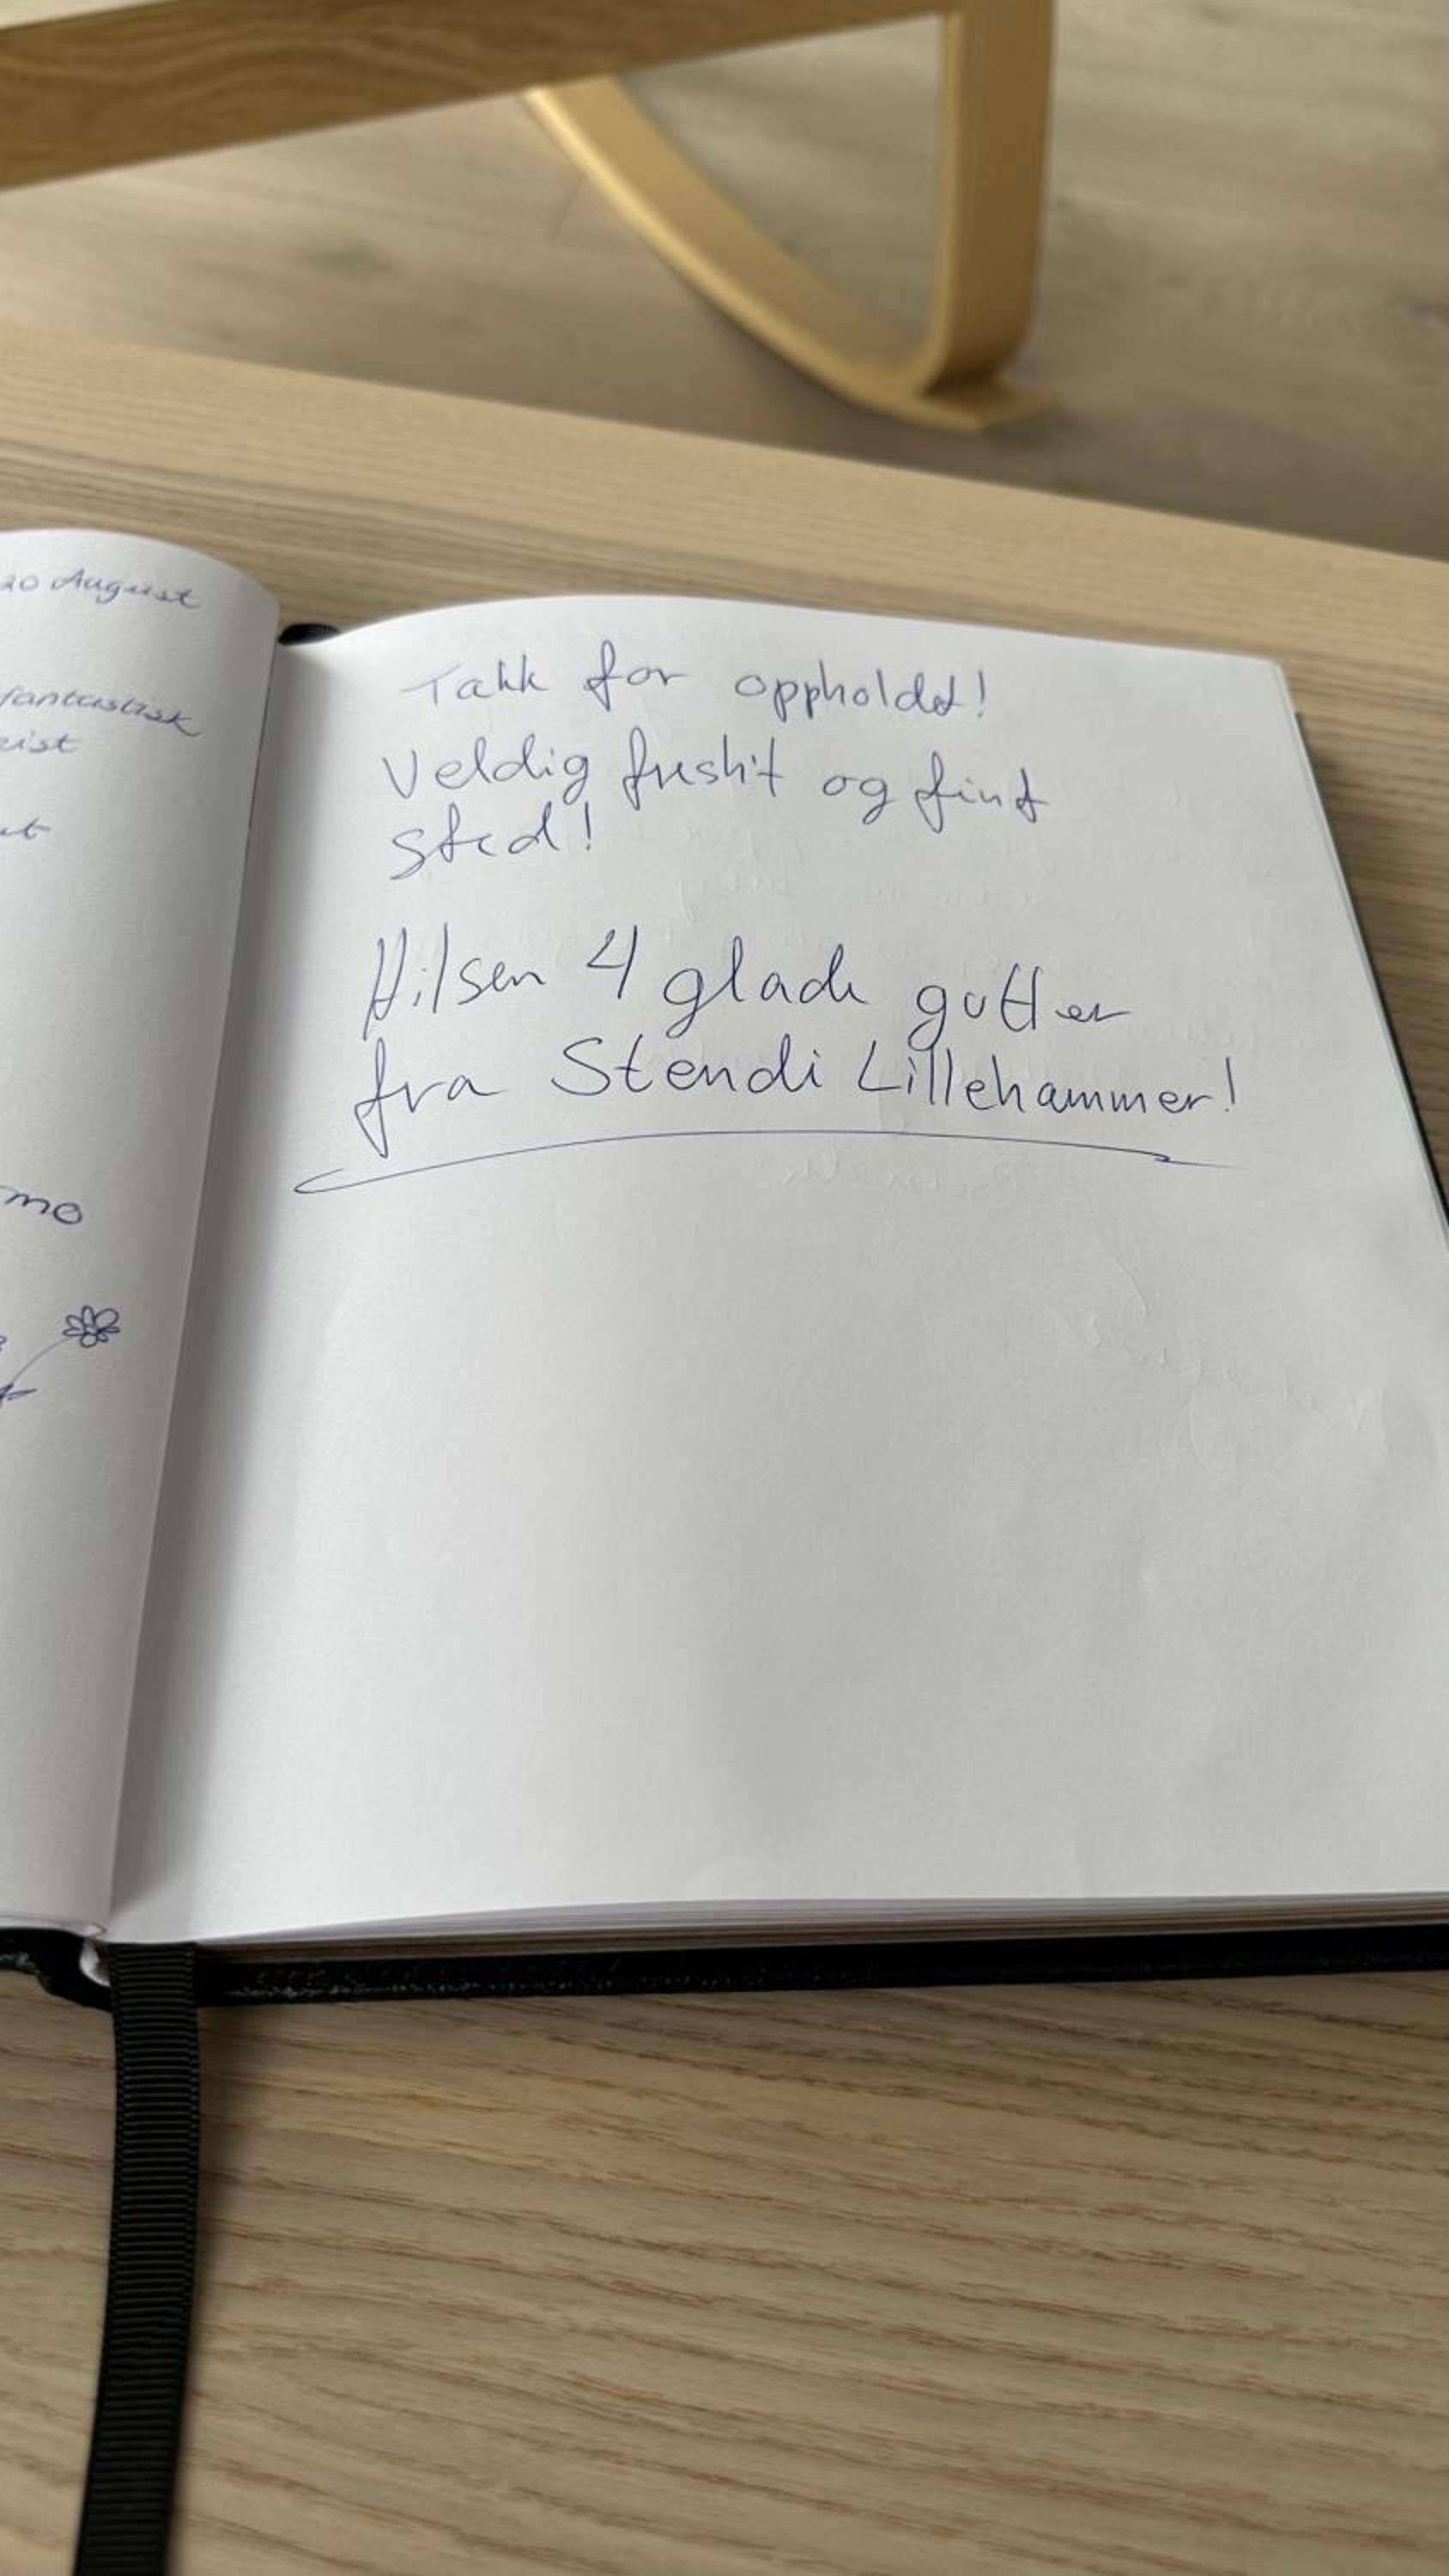 20 August
fantastisk
Takk for oppholdet!
Veldig friskt og fint
sted!
Hilsen 4 glade gutter
fra Stendi Lillehammer!